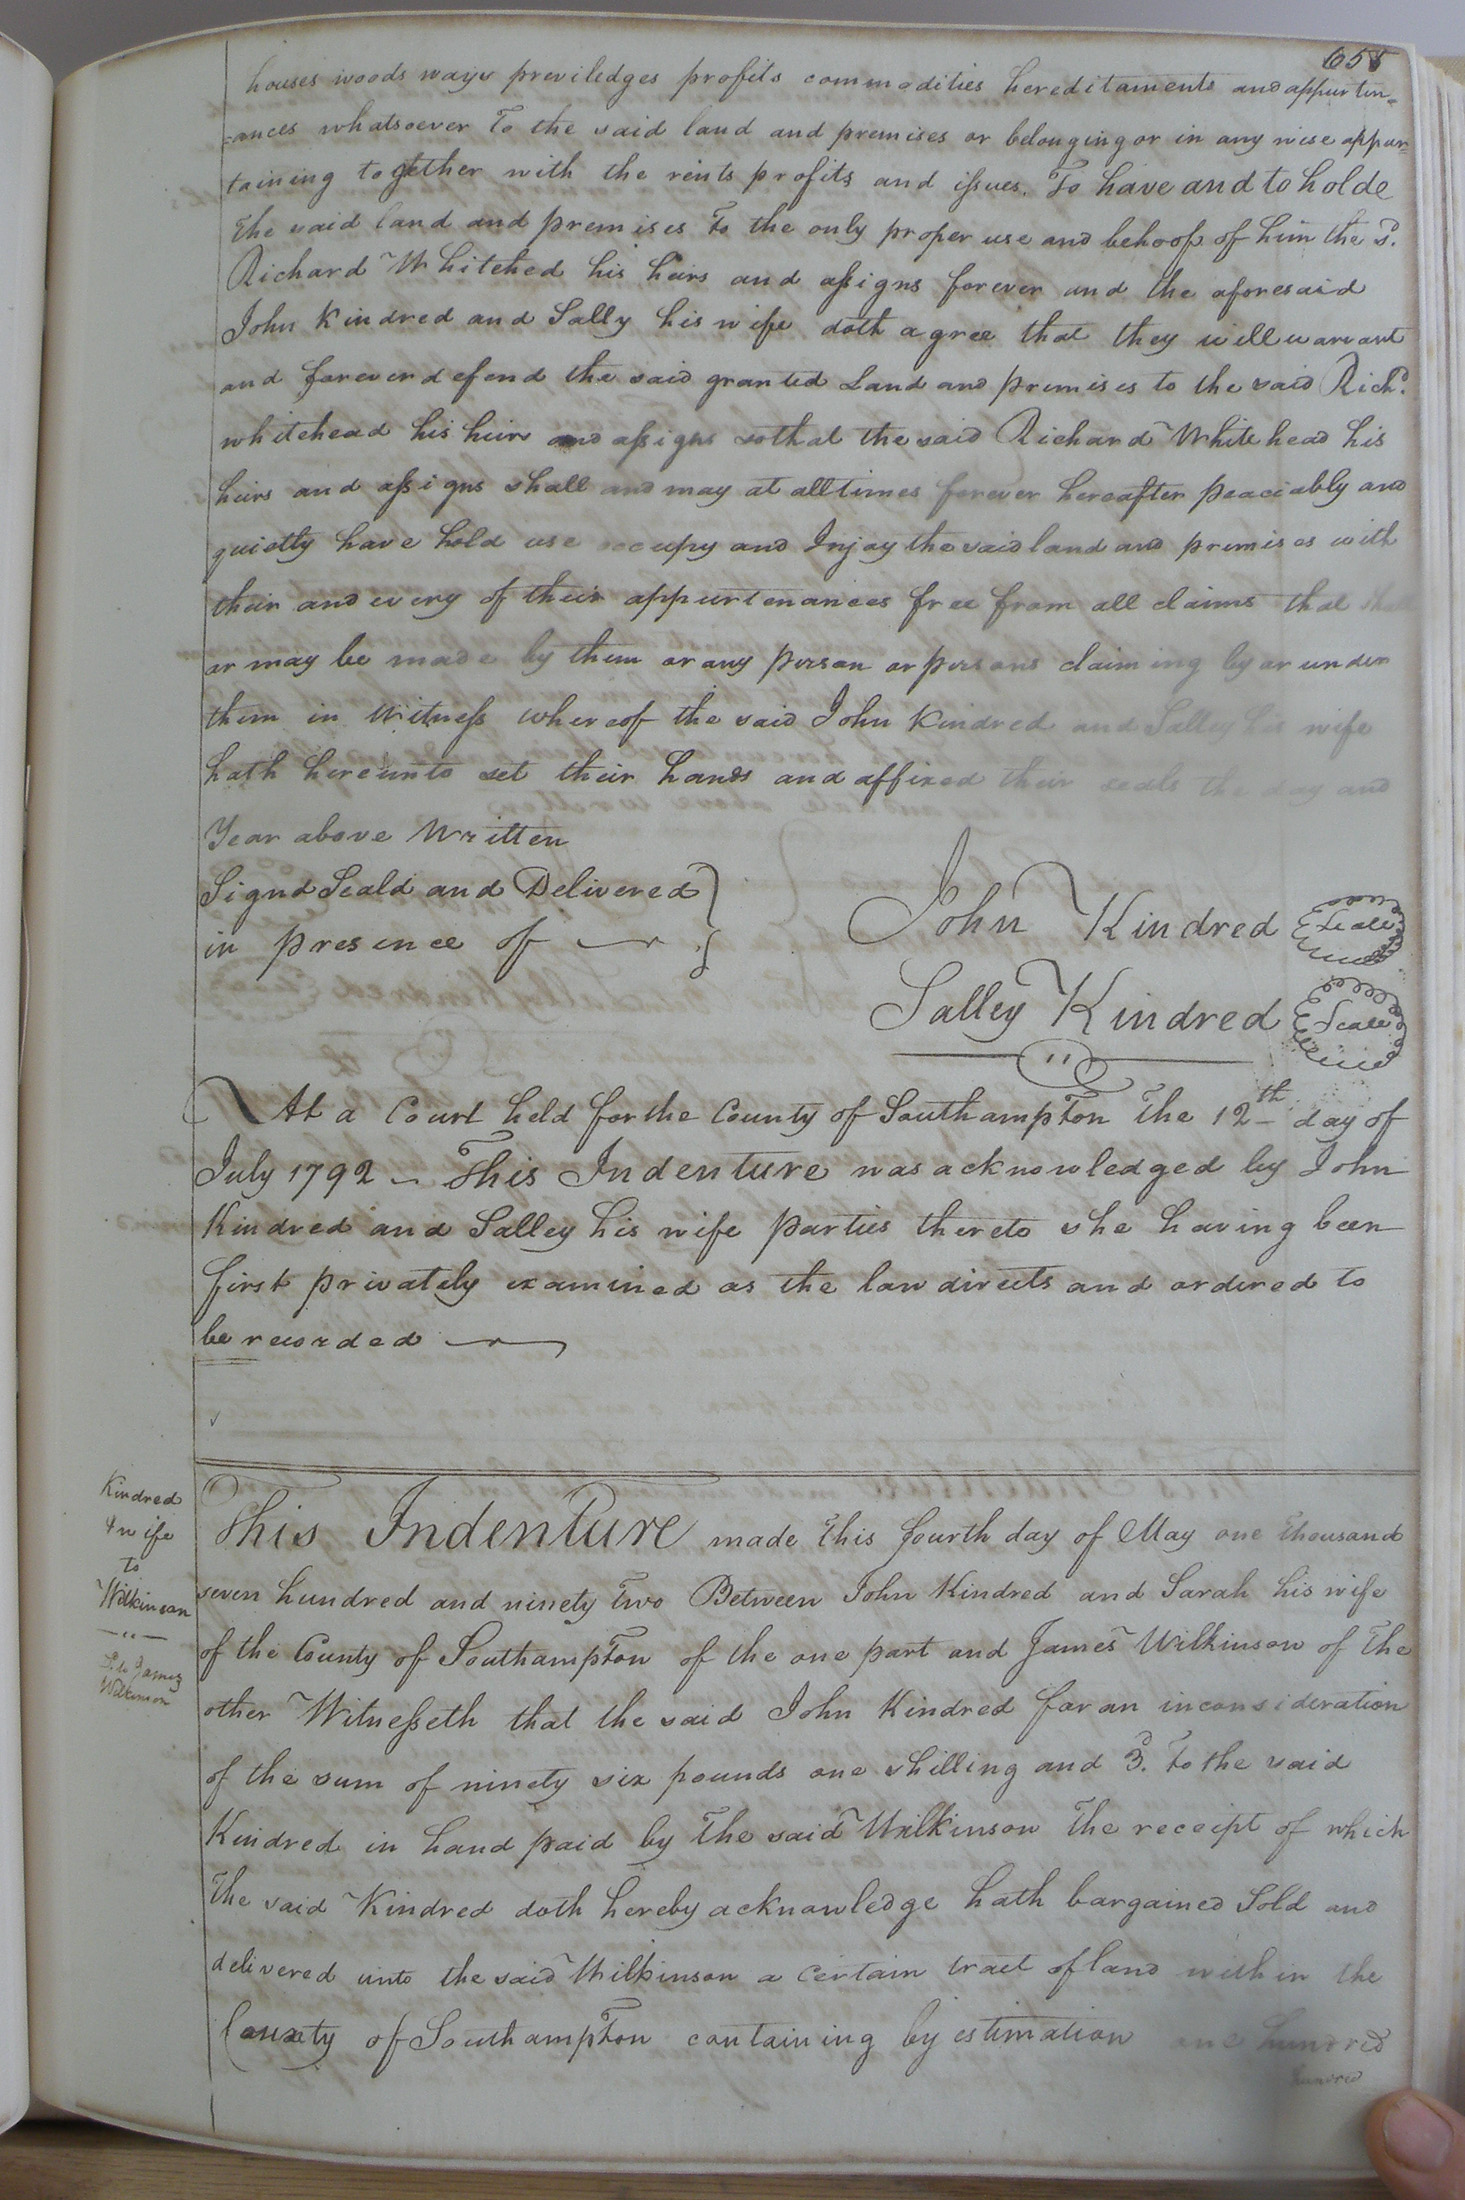 655
houses woods ways previledges profits commodities hereditaments and appurten=
=ances whatsoever To the said land and premises or belonging or in any wise appur=
taining together with the rents profits and issues. To have and to holde
The said land and premises To the only proper use and behoof of him the sd.
Richard Whitehed his heirs and assigns forever and the aforesaid
John Kindred and Sally his wife doth agree that they will warrant
and forever defend the said granted Land and premises to the said Richd.
whitehead his heirs and assigns so that the said Richard Whitehead his
heirs and assigns shall and may at all times forever hereafter peaciably and
quietly have hold use occupy and Injoy the said land and premises with
their and every of their appurtenances free from all claims that shall
or may be made by them or any person or persons claiming by or under
them in Witness whereof the said John Kindred and Salley his wife
hath hereunto set their hands and affixed their seals the day and
Year above Written
Signd Seald and Delivered
in presence of
John Kindred Seale
Salley Kindred Seale
At a Court held for the County of Southampton The 12th day of
July 1792 — This Indenture was acknowledged by John
Kindred and Salley his wife parties thereto she having been
first privately examined as the law directs and ordered to
be recorded
Kindred
& wife
to
Wilkinson
James
Wilkinson
This Indenture made This fourth day of May one thousand
seven hundred and ninety Two Between John Kindred and Sarah his wife
of the County of Southampton of the one part and James Wilkinson of The
other Witnesseth that the said John Kindred for an inconsideration
of the sum of ninety six pounds one shilling and 3d. To the said
Kindred in hand paid by The said Wilkinson The receipt of which
The said Kindred doth hereby acknowledge hath bargained Sold and
delivered unto the said Wilkinson a certain tract of land with in the
County of Southampton containing by estimation one hundred
hundred